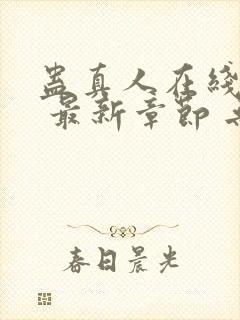 蛊真人在线
最新章节
春日晨光